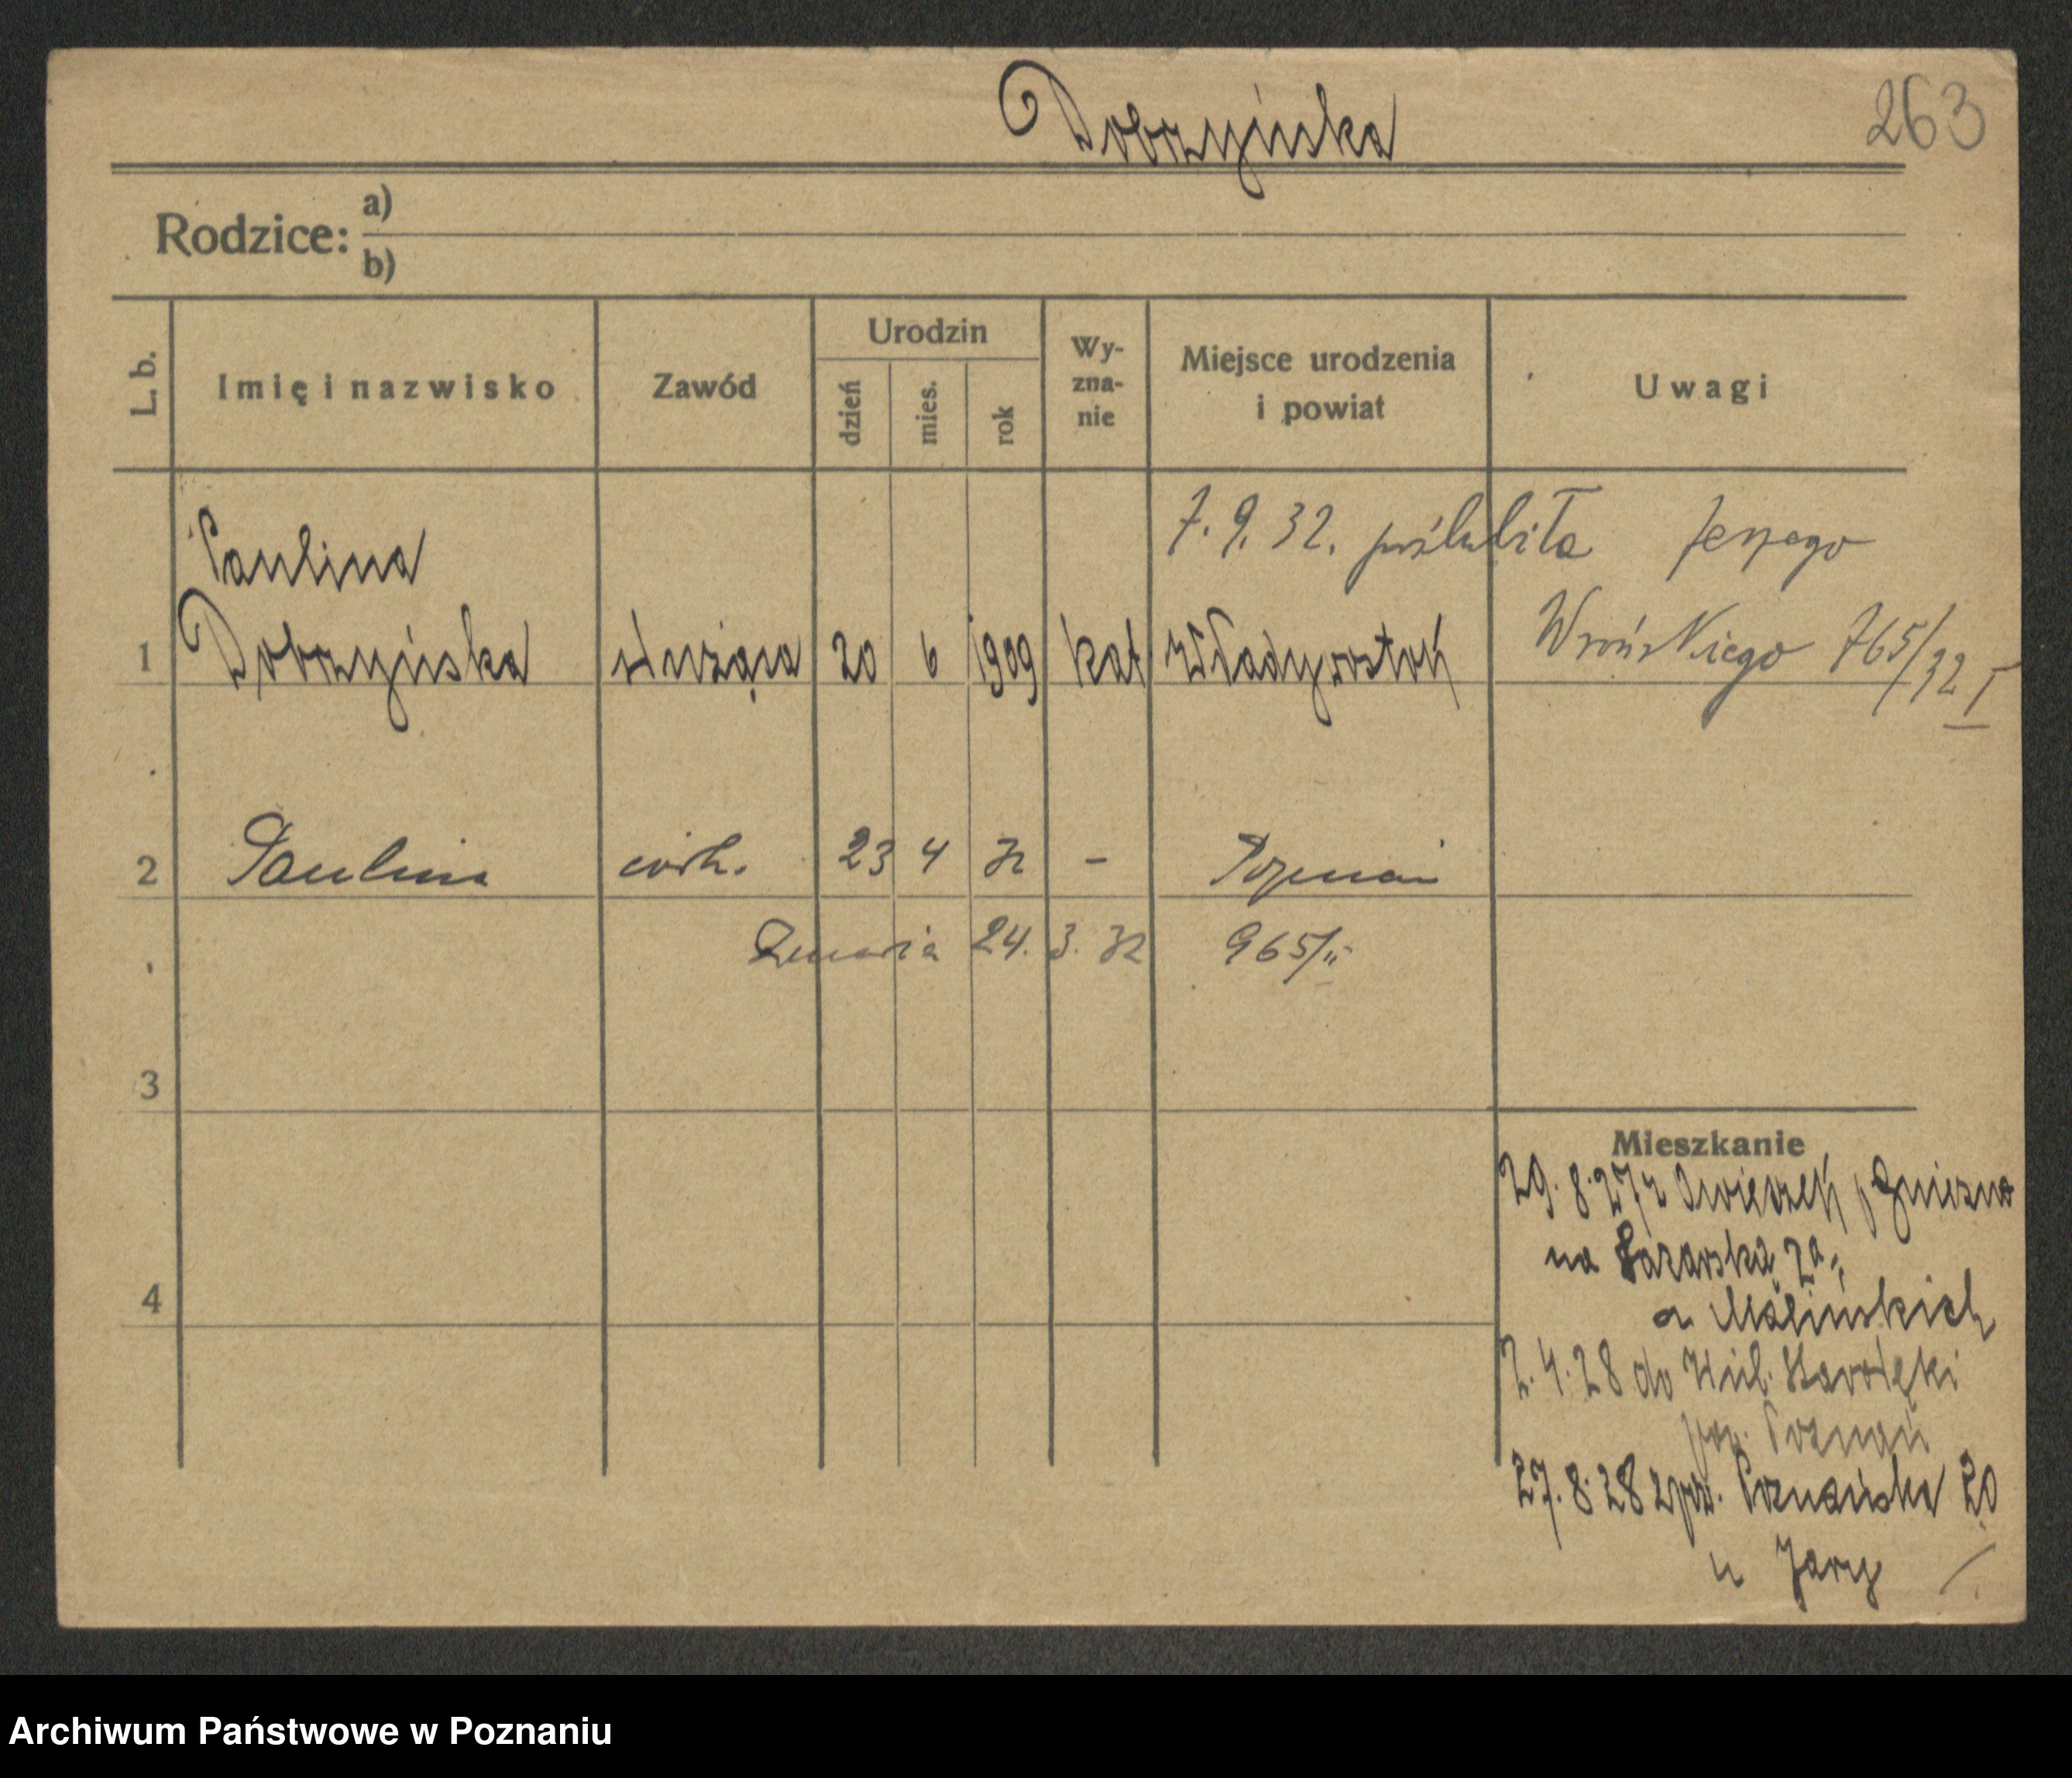 Dobrzyńska 263
Rodzice: a)
b)
L. b. Imię i nazwisko Zawód Urodzin dzień mies. rok Wy-zna-nie Miejsce urodzenia i powiat Uwagi
7. 9. 32. poślubiła Jerzego
Paulina
1 Dobrzyńska służąca 20 6 1909 kat Władywostok Wrońskiego 765/32 I
2 Paulina córk. 23 4 32 - Poznań
Zmarła 24. 3. 32 965/II
3
Mieszkanie
29. 8. 27 z Gniezno
na Łazarską 2a
4
u Malińskich
2. 4. 28 do Starołęki
pow. Poznań
27. 8. 28 z pow. Poznańska 20
u Jary
Archiwum Państwowe w Poznaniu